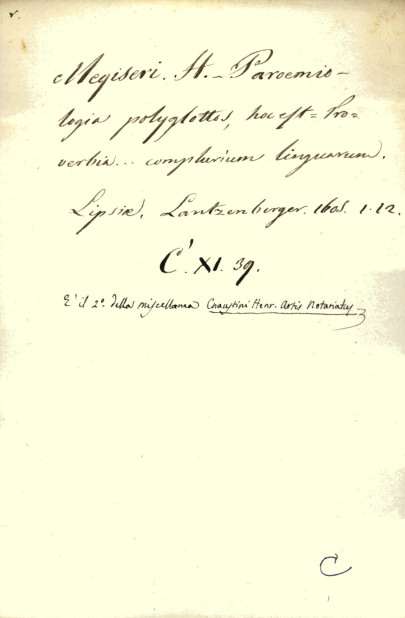 Megiseri. H. - Paroemio-
logia polyglottos, hoc est = Pro=
verbia... complurium linguarum.
Lipsiæ, Lantzenberger. 1605. 1. 12.
C. XI. 39.
E' il 2º della miscellanea Henr. Artis Notariatus
C